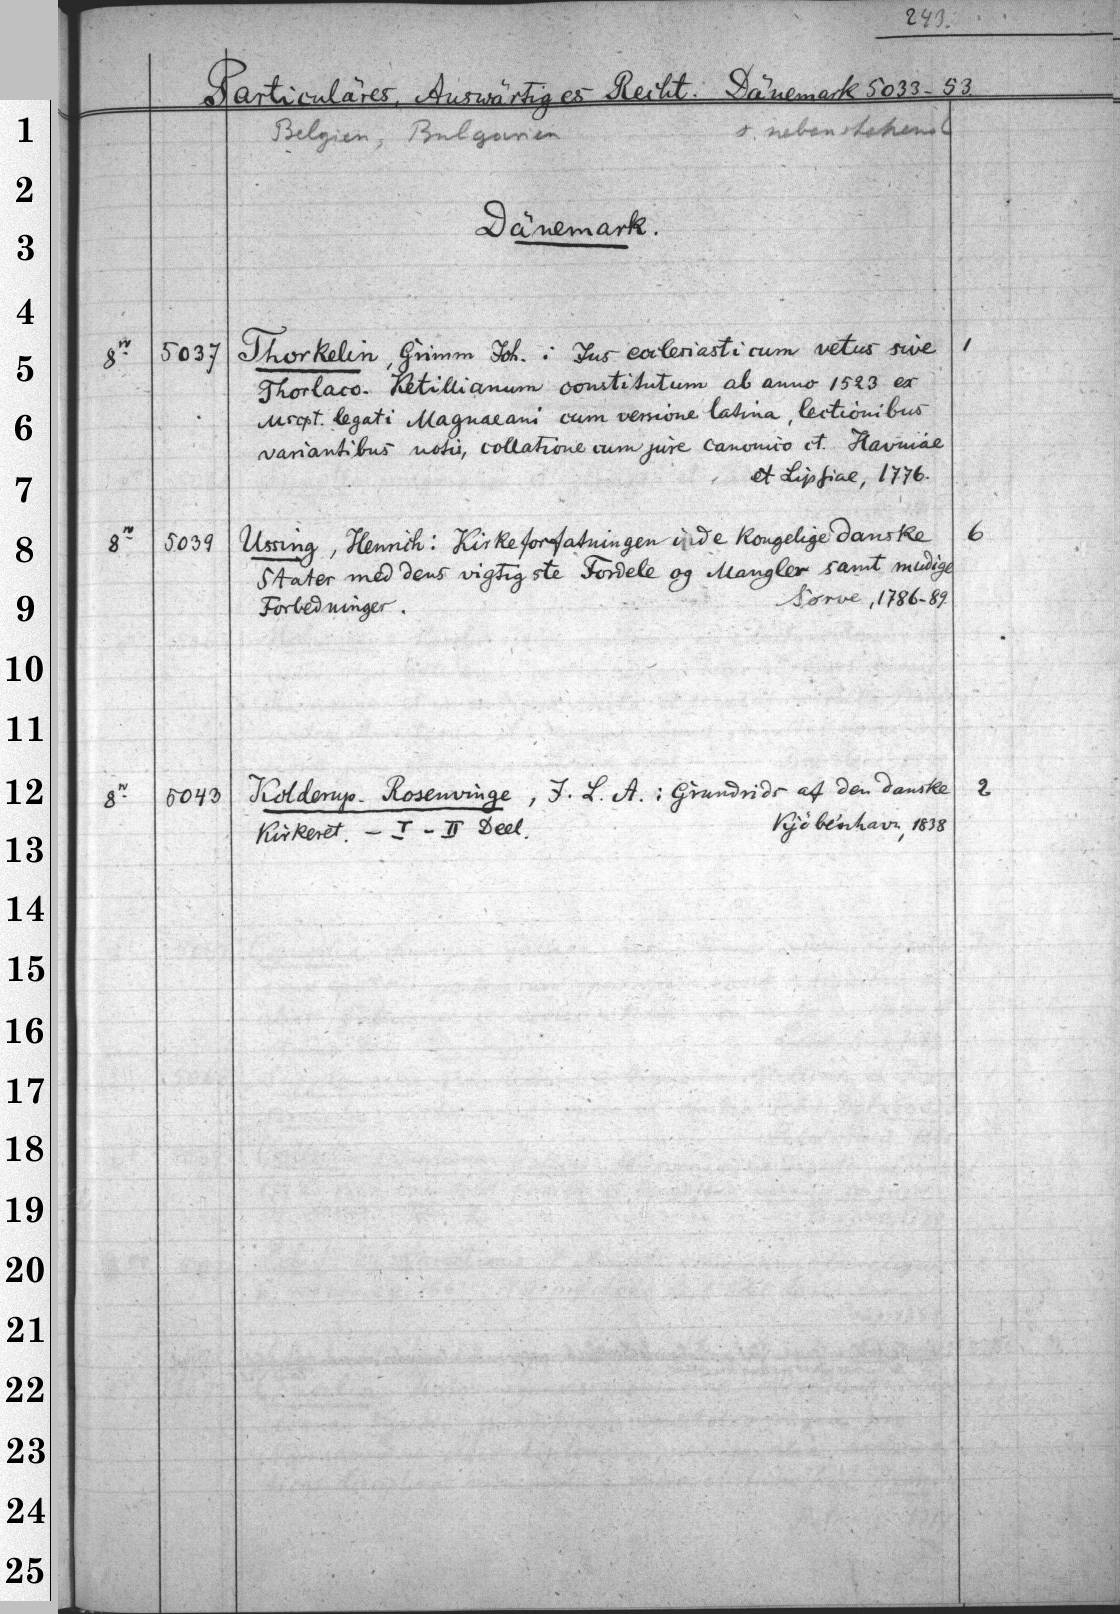 243.
Particuläres, Auswärtiges Recht. Dänemark 5033-53
Belgien, Bulgarien s. nebenstehend
Dänemark.
8º 5037 Thorkelin, Grimm Joh. : Jus ecclesiasticum vetus sive 1
Thorlaco-Ketillianum constitutum ab anno 1523 ex
Mscpt. legati Magnaeani cum versione latina, lectionibus
variantibus notis, collatione cum jure canonico et. Havniae
et Lipsiae, 1776.
8º 5039 Ussing, Henrich: Kirkeforfatningen i de kongelige danske 6
Stater med dens vigtigste Fordele og Mangler samt mudige
Forbedninger. Sorve, 1786-89
8º 5043 Kolderup-Rosenvinge, J. L. A. : Grundrids af den danske 2
Kirkeret. - I - II Deel. Kjöbenhavn, 1838
1
2
3
4
5
6
7
8
9
10
11
12
13
14
15
16
17
18
19
20
21
22
23
24
25